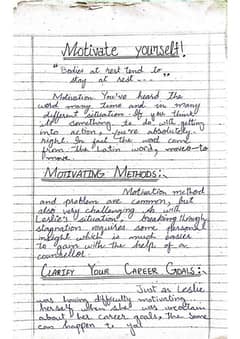 Motivate yourself!
"Bodies at rest tend to
stay at rest...."
Motivation You've heard the
word many time and in many
different situation. If you think
it something to do with getting
into action, you're absolutely
right. In fact the word came
from the Latin word, moveo-to
move
MOTIVATING METHODS:-
Motivation method
and problem are common, but
also very challenging. As with
Leslie's situation, breaking through
stagnation requires some personal
insight which is much easier
to gain with the help of a
counsellor.
CLARIFY YOUR CAREER GOALS:-
Just as Leslie
was having difficulty motivating
herself when she was uncertain
about her career goals, the same
can happen to you